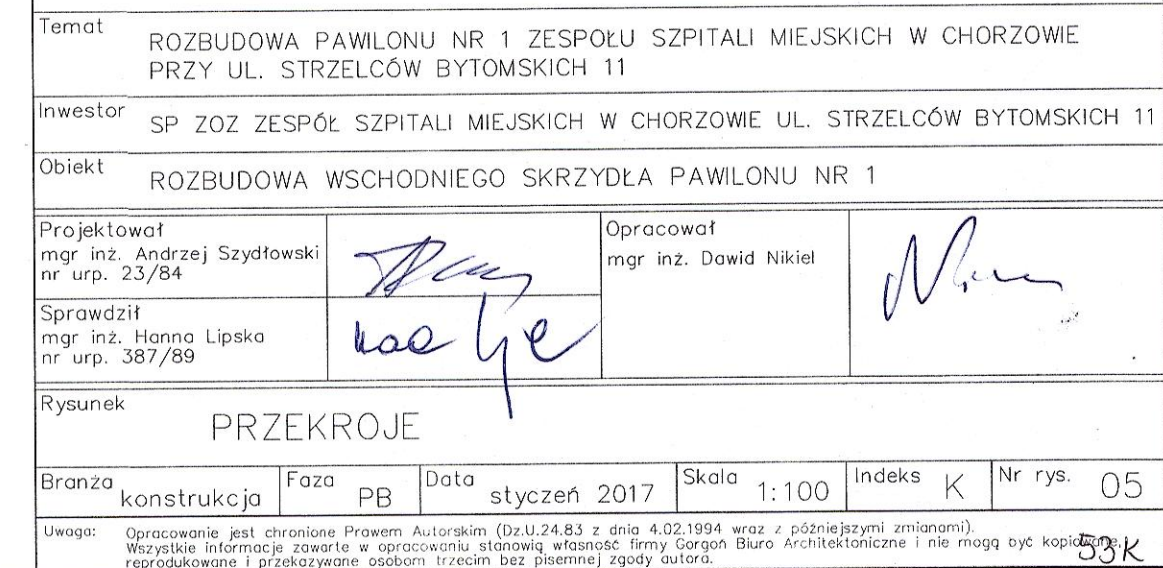 Temat
ROZBUDOWA PAWILONU NR 1 ZESPOŁU SZPITALI MIEJSKICH W CHORZOWIE
PRZY UL. STRZELCÓW BYTOMSKICH 11
Inwestor
SP ZOZ ZESPÓŁ SZPITALI MIEJSKICH W CHORZOWIE UL. STRZELCÓW BYTOMSKICH 11
Obiekt
ROZBUDOWA WSCHODNIEGO SKRZYDŁA PAWILONU NR 1
Projektował
mgr inż. Andrzej Szydłowski
nr urp. 23/84
Opracował
mgr inż. Dawid Nikiel
Sprawdził
mgr inż. Hanna Lipska
nr urp. 387/89
Rysunek
PRZEKROJE
Branża konstrukcja
Faza PB
Data styczeń 2017
Skala 1:100
Indeks K
Nr rys. 05
Uwaga: Opracowanie jest chronione Prawem Autorskim (Dz.U.24.83 z dnia 4.02.1994 wraz z późniejszymi zmianami).
Wszystkie informacje zawarte w opracowaniu stanowią własność firmy Gorgoń Biuro Architektoniczne i nie mogą być kopiowane,
reprodukowane i przekazywane osobom trzecim bez pisemnej zgody autora.
53K